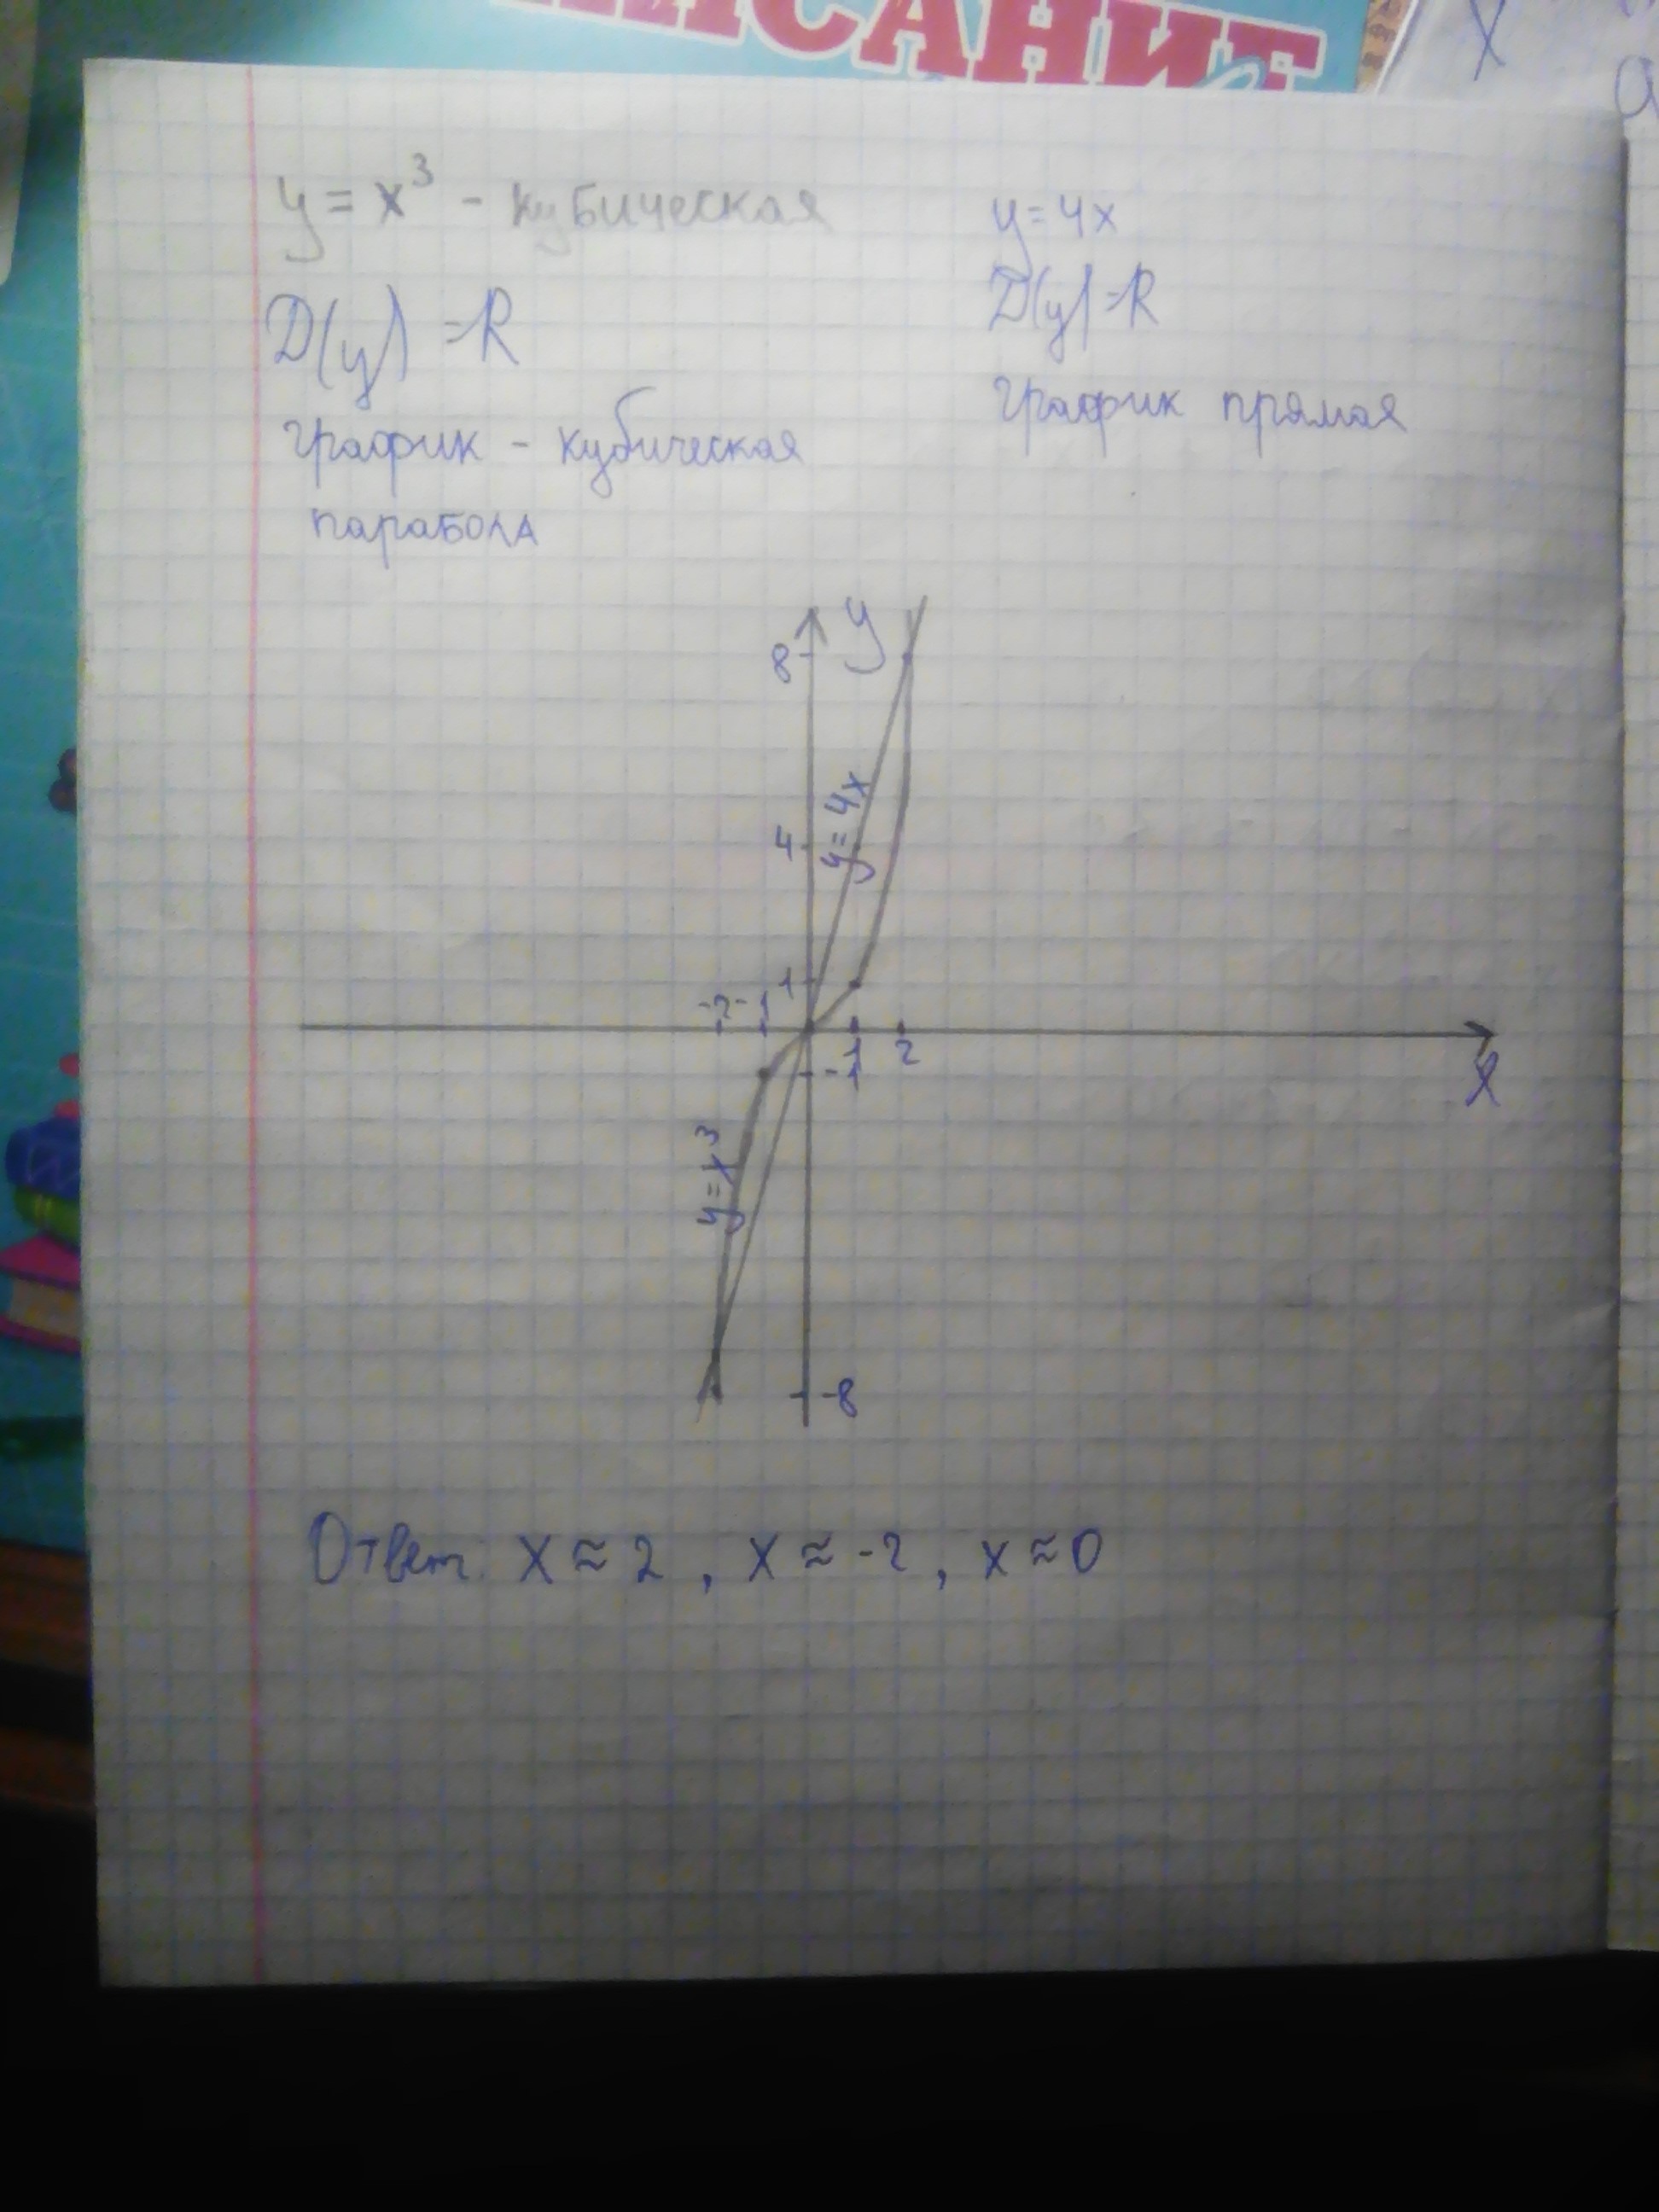 ИСАНИЕ
X
y = x³ - кубическая
D(y) = R
график - кубическая
парабола
y = 4x
D(y) = R
график прямая
y
8
y = 4x
4
1
-2 -1
1 2
-1
X
y = x³
-8
Ответ: x ≈ 2 , x ≈ -2 , x ≈ 0